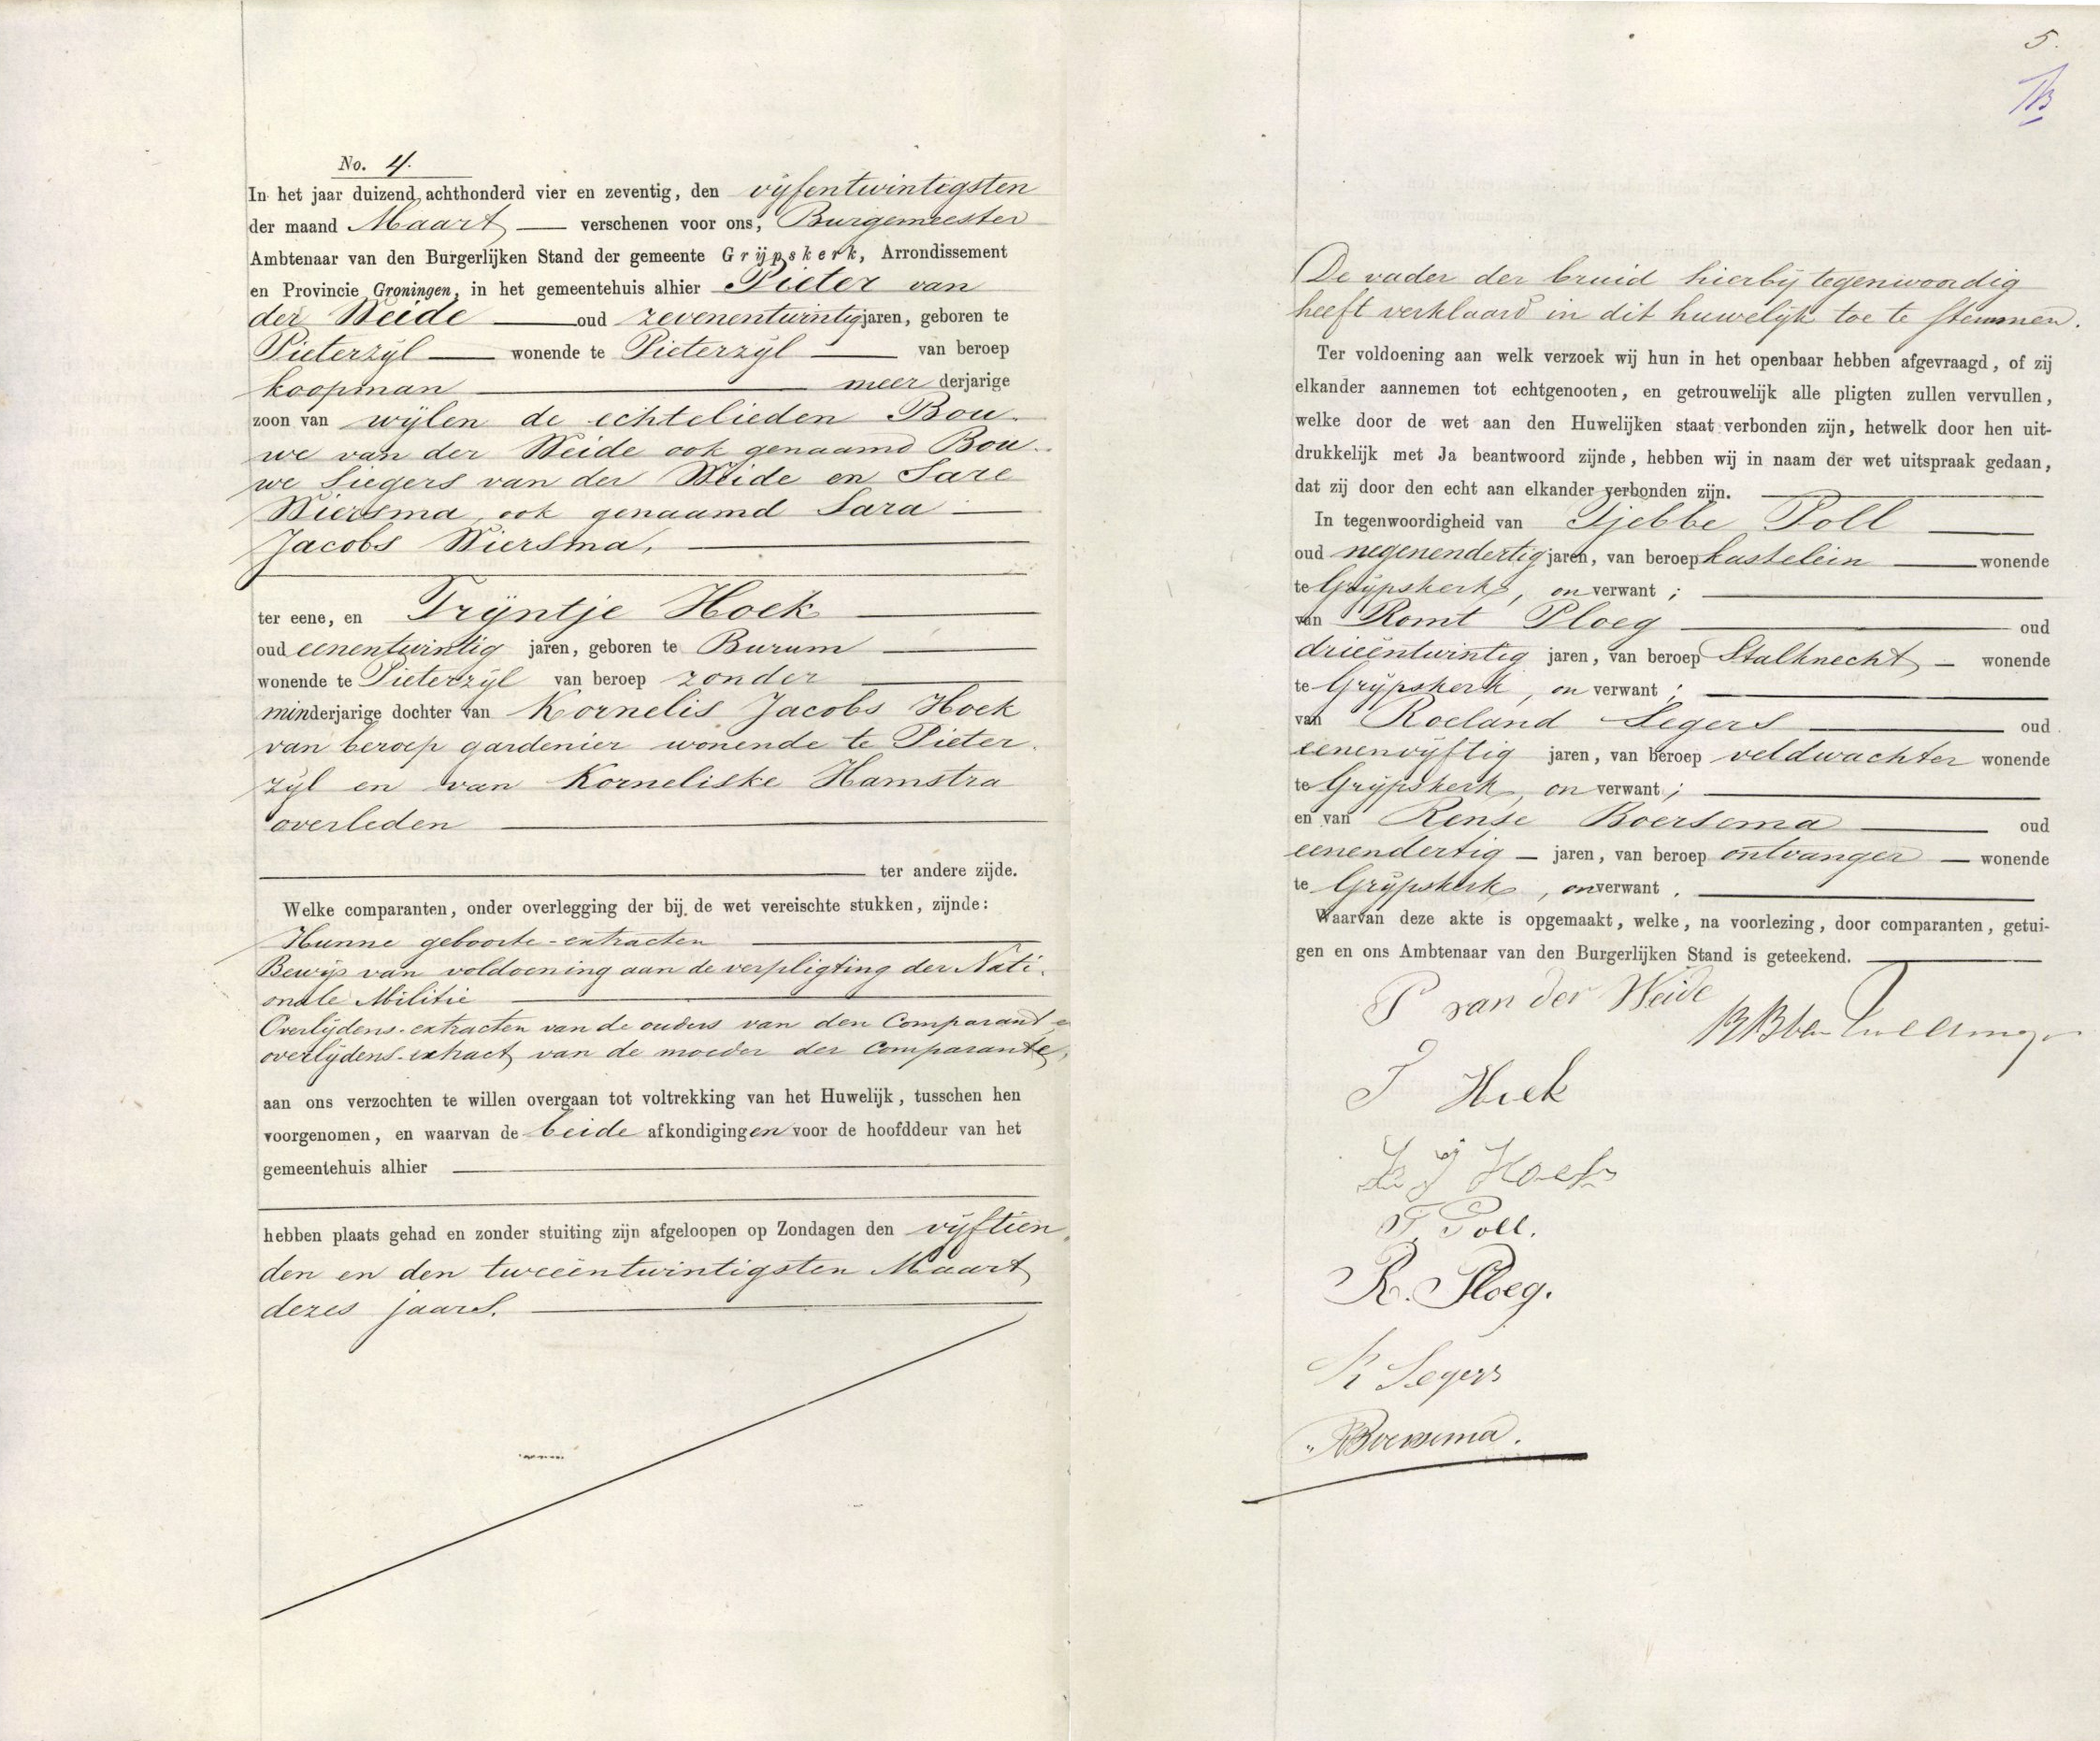 No. 4.
In het jaar duizend achthonderd vier en zeventig, den vijfentwintigsten
der maand Maart — verschenen voor ons, Burgemeester
Ambtenaar van den Burgerlijken Stand der gemeente Grijpskerk, Arrondissement
en Provincie Groningen, in het gemeentehuis alhier Pieter van
der Weide — oud zevenentwintig jaren, geboren te
Pieterzijl — wonende te Pieterzijl — van beroep
koopman — meerderjarige
zoon van wijlen de echtelieden Bou-
we van der Weide ook genaamd Bou-
we Siegers van der Weide en Sare
Wiersma, ook genaamd Sara —
Jacobs Wiersma, —
ter eene, en Trijntje Hoek —
oud eenentwintig jaren, geboren te Burum —
wonende te Pieterzijl van beroep zonder —
minderjarige dochter van Kornelis Jacobs Hoek
van beroep gardenier wonende te Pieter-
zijl en van Korneliske Hamstra
overleden —
— ter andere zijde.
Welke comparanten, onder overlegging der bij de wet vereischte stukken, zijnde:
Hunne geboorte-extracten —
Bewijs van voldoening aan de verpligting der Nati-
onale Militie —
Overlijdens-extracten van de ouders van den Comparant e
overlijdens-extract van de moeder der Comparante,
aan ons verzochten te willen overgaan tot voltrekking van het Huwelijk, tusschen hen
voorgenomen, en waarvan de beide afkondigingen voor de hoofddeur van het
gemeentehuis alhier —
hebben plaats gehad en zonder stuiting zijn afgeloopen op Zondagen den vijftien-
den en den tweeentwintigsten Maart
dezes jaars. —
5.
De vader der bruid hierbij tegenwoordig
heeft verklaard in dit huwelijk toe te stemmen.
Ter voldoening aan welk verzoek wij hun in het openbaar hebben afgevraagd, of zij
elkander aannemen tot echtgenooten, en getrouwelijk alle pligten zullen vervullen,
welke door de wet aan den Huwelijken staat verbonden zijn, hetwelk door hen uit-
drukkelijk met Ja beantwoord zijnde, hebben wij in naam der wet uitspraak gedaan,
dat zij door den echt aan elkander verbonden zijn. —
In tegenwoordigheid van Tjebbe Poll —
oud negenendertig jaren, van beroep kastelein — wonende
te Grijpskerk, onverwant; —
van Romt Ploeg — oud
drieëntwintig jaren, van beroep Stalknecht — wonende
te Grijpskerk, onverwant; —
van Roeland Segers — oud
eenenvijftig jaren, van beroep veldwachter wonende
te Grijpskerk, onverwant; —
en van Rense Boersema — oud
eenendertig — jaren, van beroep ontvanger — wonende
te Grijpskerk, onverwant. —
Waarvan deze akte is opgemaakt, welke, na voorlezing, door comparanten, getui-
gen en ons Ambtenaar van den Burgerlijken Stand is geteekend. —
P van der Weide
T Hoek
K J Hoek
T. Poll.
R. Ploeg.
R Segers
RBoersema.